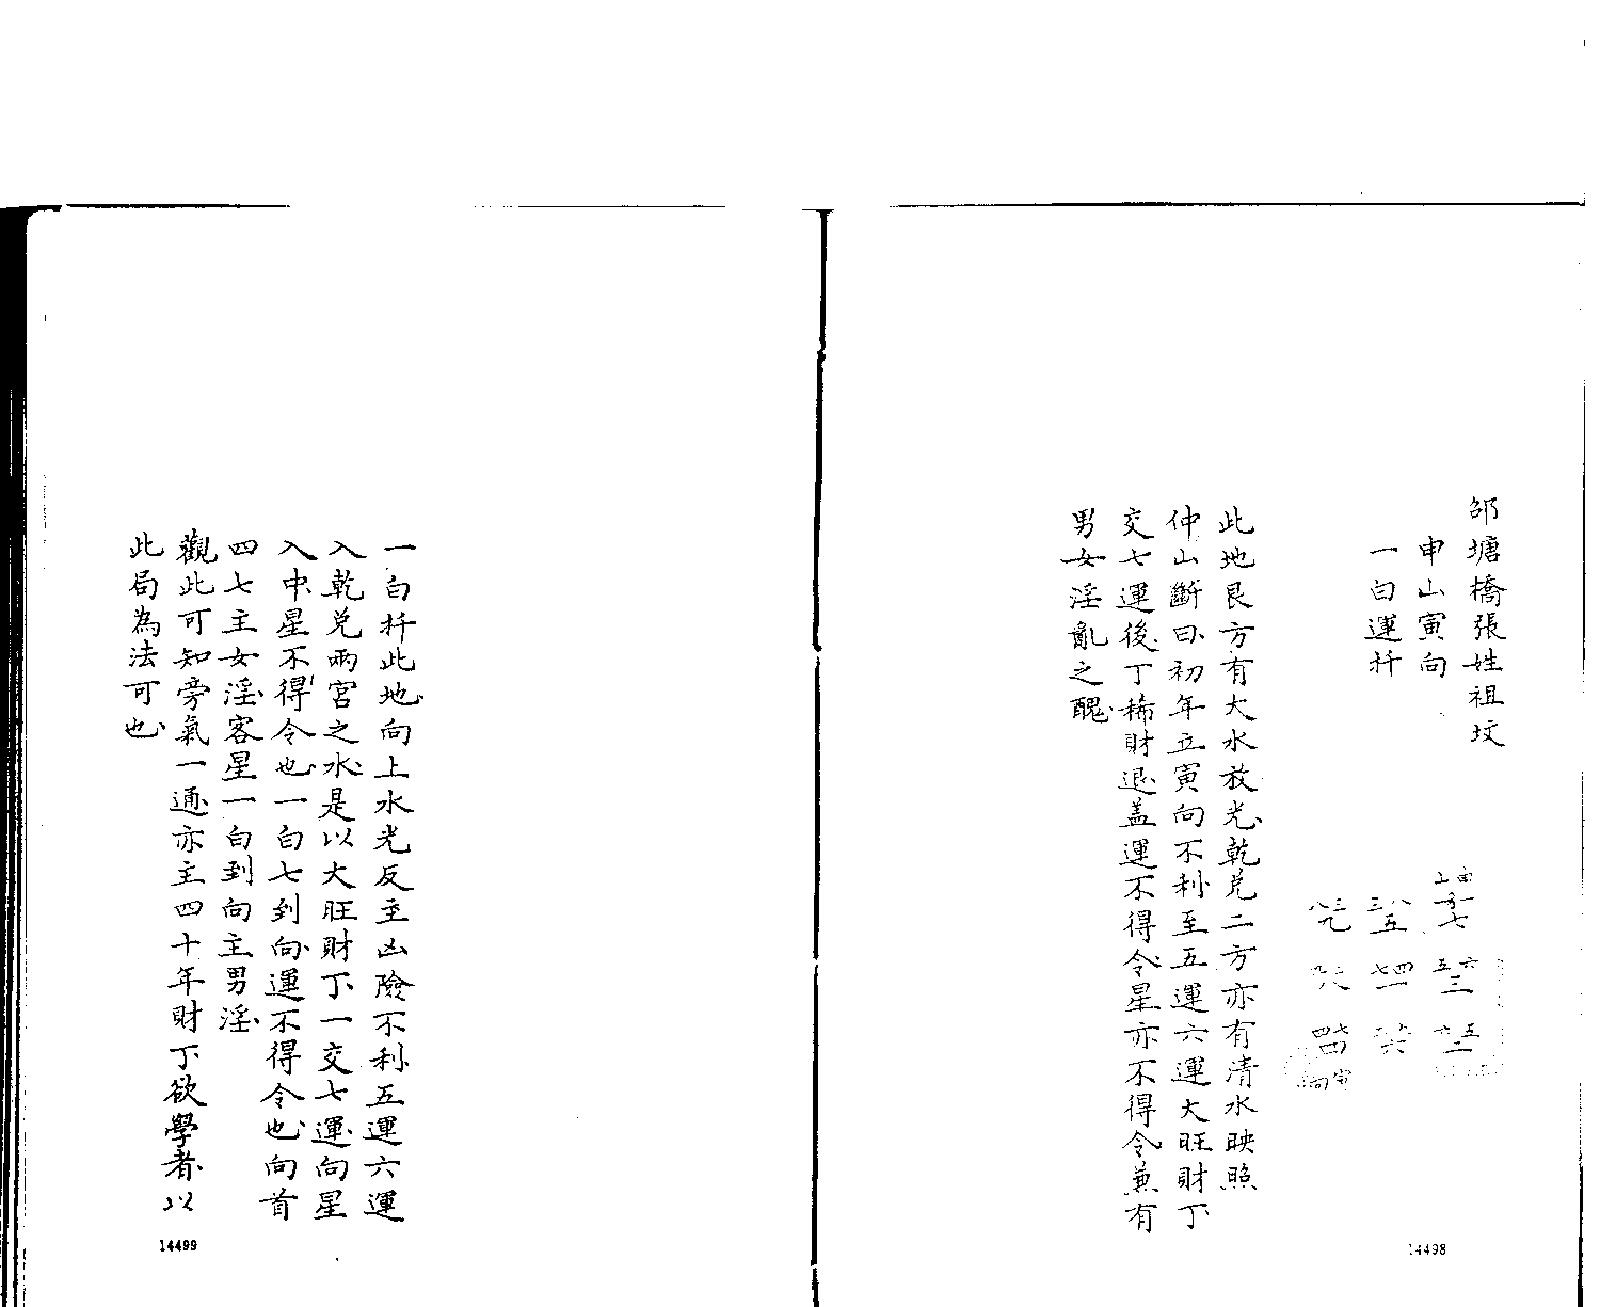 邵塘橋張姓祖坟
申山寅向
一白運扦
此地艮方有大水放光乾兑二方亦有清水映照
仲山斷曰初年立寅向不利至五運六運大旺財丁
交七運後丁稀財退盖運不得令星亦不得令兼有
男女淫亂之醜
14498
一白扦此地向上水光反主凶險不利五運六運
入乾兑兩宮之水是以大旺財丁一交七運向星
入中星不得令也一白七到向運不得令也向首
四七主女淫客星一白到向主男淫
觀此可知旁氣一通亦主四十年財丁欲學者以
此局為法可也
14499